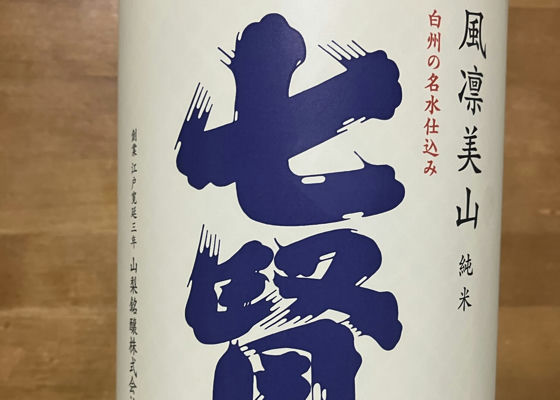 風凛美山 純米
白州の名水仕込み
七賢
創業 江戸寛延三年 山梨銘醸株式会